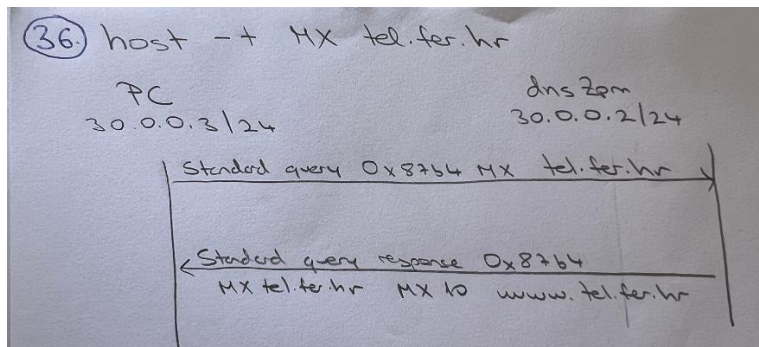 36. host -t MX tel.fer.hr
PC dnsZpm
30.0.0.3/24 30.0.0.2/24
Standard query 0x87b4 MX tel.fer.hr
Standard query response 0x87b4
MX tel.fer.hr MX 10 www.tel.fer.hr